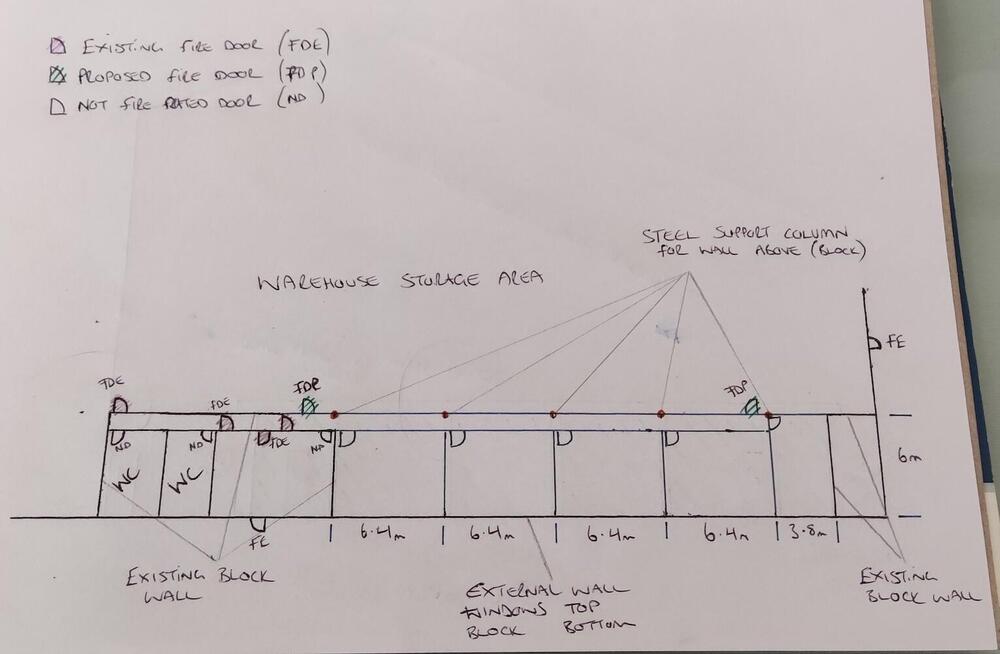 EXISTING FIRE DOOR (FDE)
PROPOSED FIRE DOOR (FDP)
NOT FIRE RATED DOOR (ND)
STEEL SUPPORT COLUMN
FOR WALL ABOVE (BLOCK)
WAREHOUSE STORAGE AREA
FE
FDE
FDE
FDP
FDP
ND
ND
FDE
ND
WC
WC
6m
FE
6.4m
6.4m
6.4m
6.4m
3.8m
EXISTING BLOCK
WALL
EXTERNAL WALL
WINDOWS TOP
BLOCK BOTTOM
EXISTING
BLOCK WALL